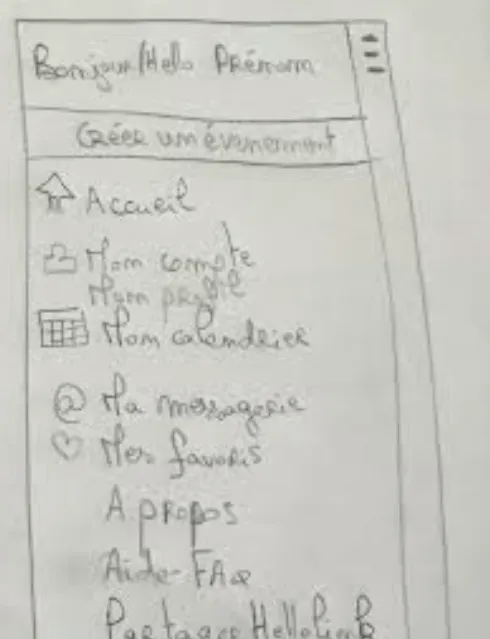 Bonjour/Hello Prénom
Créer un évènement
Accueil
Mon compte
Mon profil
Mon calendrier
@ Ma messagerie
Mes favoris
A propos
Aide-FAQ
Partager